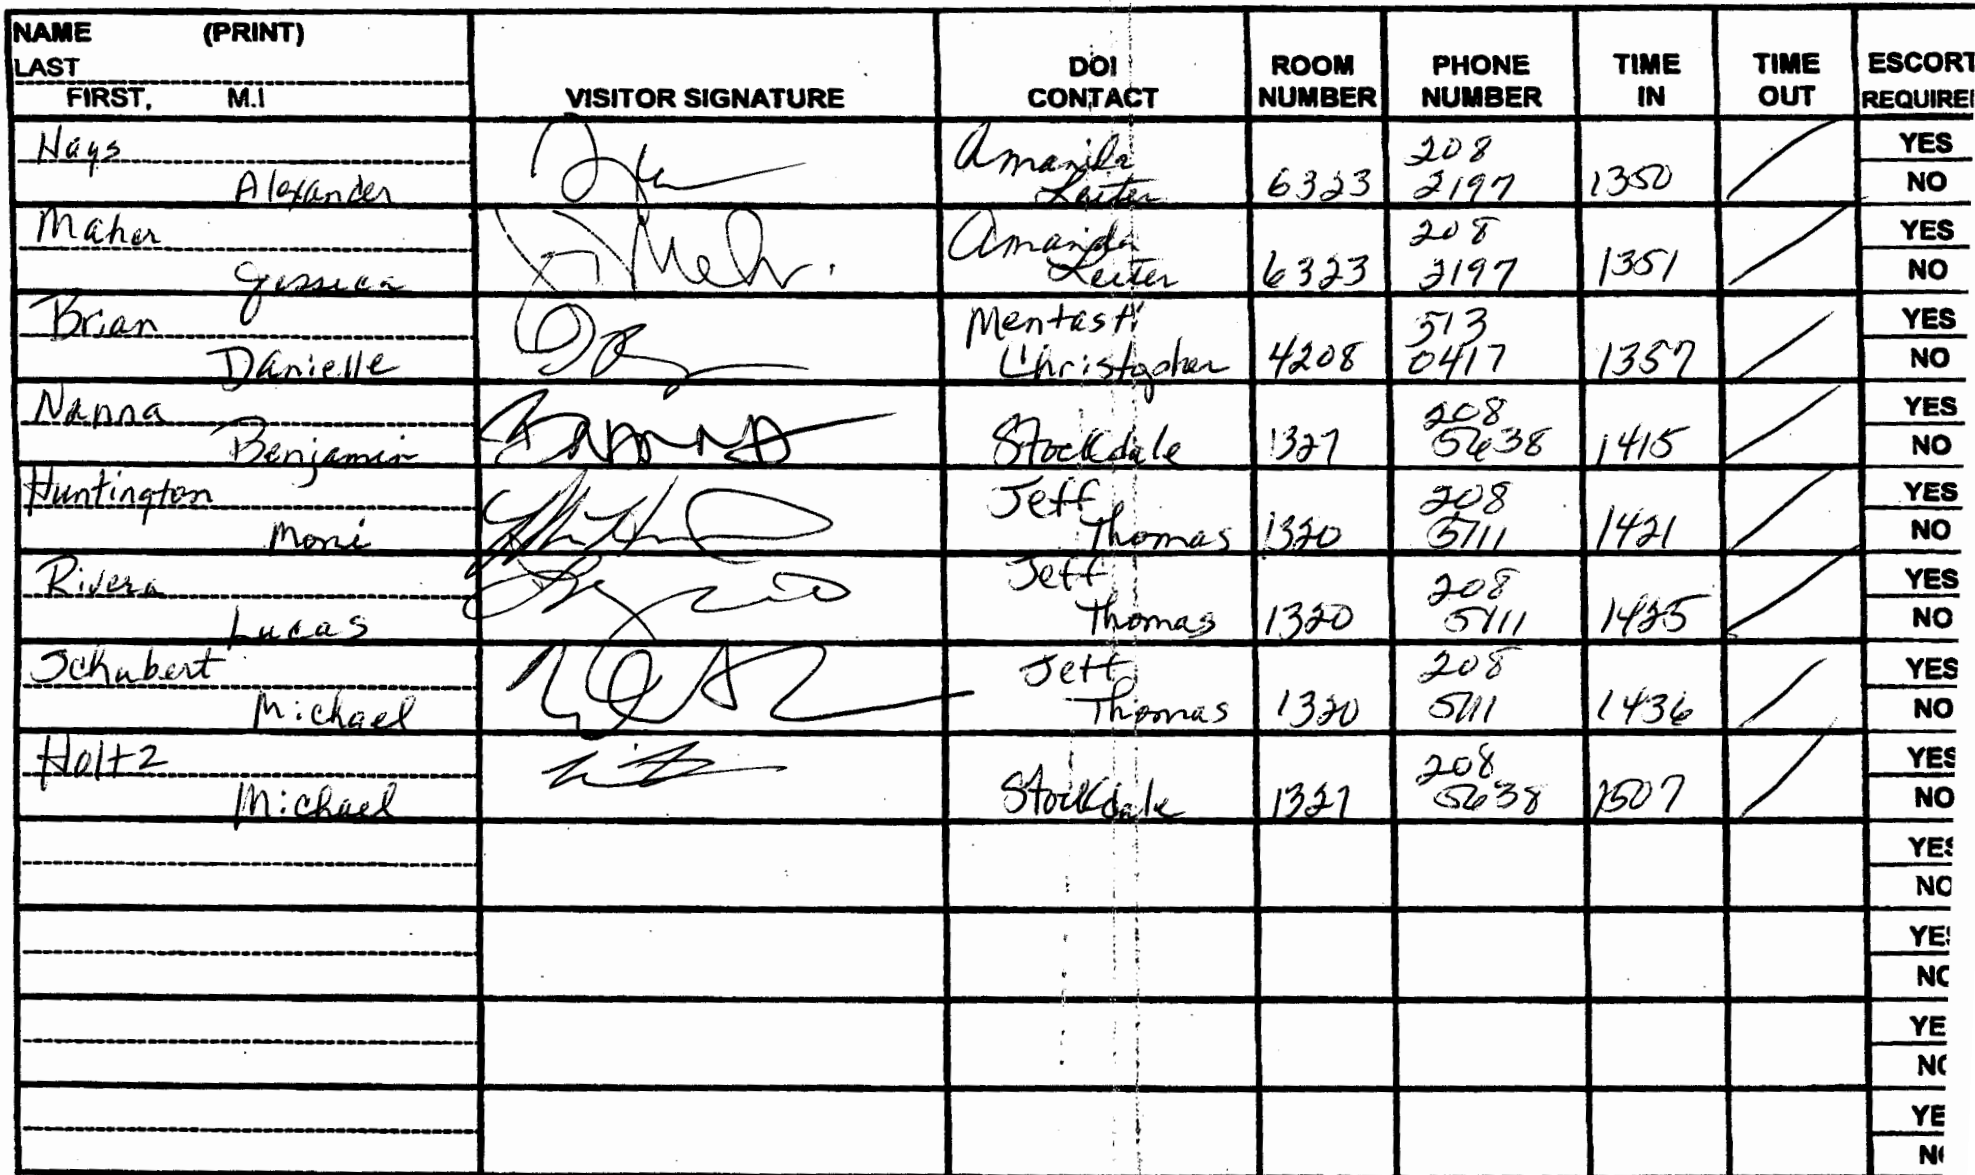 NAME (PRINT)
LAST
FIRST, M.I
VISITOR SIGNATURE
DOI
CONTACT
ROOM
NUMBER
PHONE
NUMBER
TIME
IN
TIME
OUT
ESCORT
REQUIRE
Hays
Alexander
Amanda
Leiter
6323
208
2197
1350
YES
NO
Maher
Jessica
Amanda
Leiter
6323
208
2197
1351
YES
NO
Brian
Danielle
Mentasti
Christopher
4208
513
0417
1357
YES
NO
Nanna
Benjamin
Stockdale
1327
208
5638
1415
YES
NO
Huntington
Moni
Jeff
Thomas
1320
208
5111
1421
YES
NO
Rivera
Lucas
Jeff
Thomas
1320
208
5111
1425
YES
NO
Schubert
Michael
Jeff
Thomas
1320
208
5111
1436
YES
NO
Holtz
Michael
Stockdale
1327
208
5638
1507
YES
NO
YES
NO
YES
NO
YE
NO
YE
NO